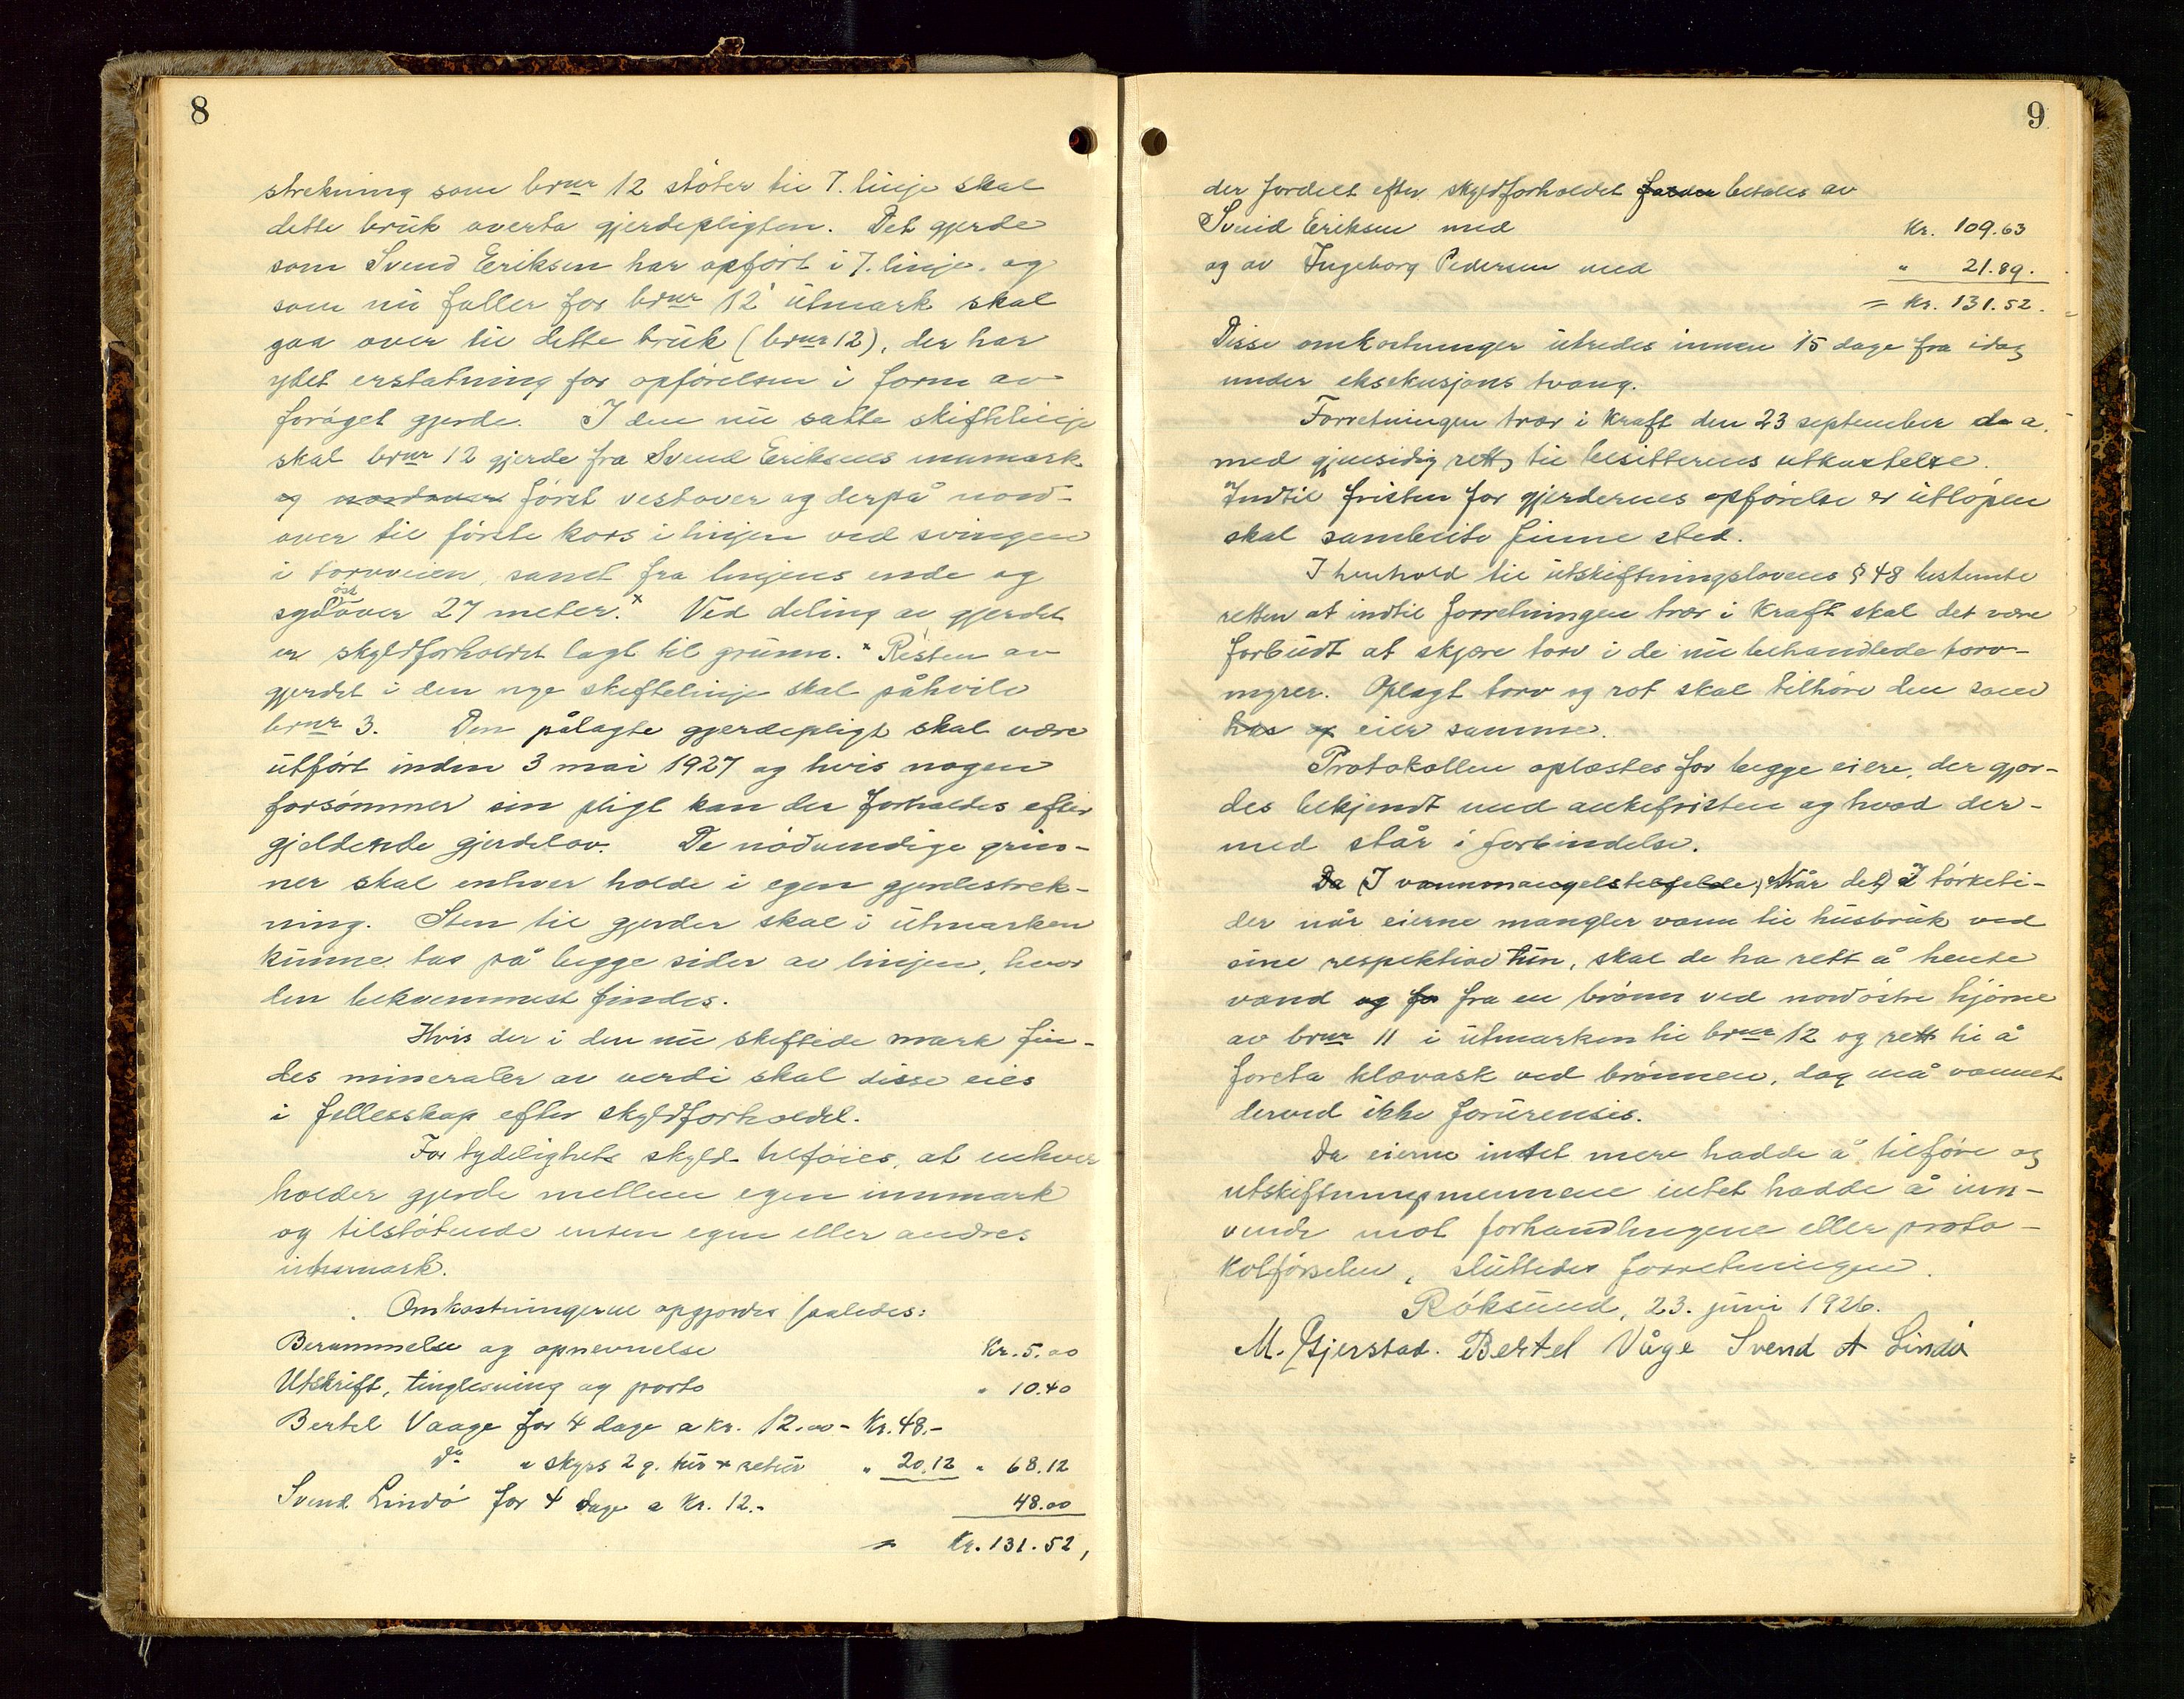 8
strekning som brnr 12 støter til 7. linje skal
dette bruk overta gjerdepligten. Det gjerde
som Svend Eriksen har opført i 7. linje og
som nu faller for brnr 12 utmark skal
gaa over til dette bruk (brnr 12), der har
ydet erstatning for opførelsen i form av
forøget gjerde. I den nu satte skiftelinje
skal brnr 12 gjerde fra Svend Eriksens innmark
og nordover først vestover og derpå nord-
over til første kors i linjen ved svingen
i torvveien, samt fra linjens ende og
øst
sydover 27 meter. x Ved deling av gjerdet
er skyldforholdet lagt til grunn. x Resten av
gjerdet i den nye skiftelinje skal påhvile
brnr 3. Den pålagte gjerdepligt skal være
utført inden 3 mai 1927 og hvis nogen
forsømmer sin pligt kan der forholdes efter
gjeldende gjerdelov. De nødvendige grin-
ner skal enhver holde i egen gjerdestrek-
ning. Sten til gjerder skal i utmarken
kunne tas på begge sider av linjen, hvor
den bekvemmest findes.
Hvis der i den nu skiftede mark fin-
des mineraler av verdi skal disse eies
i fellesskap efter skyldforholdet.
For tydelighets skyld tilføies, at enhver
holder gjerde mellem egen innmark
og tilstøtende enten egen eller andres
utmark.
Omkostningerne opgjordes saaledes:
Berammelse og opnevnelse Kr. 5.00
Utskrift, tinglesning og porto " 10.40
Bertel Vaage for 4 dage a kr. 12.00 - Kr. 48.-
do " skyss 2 g. tur & retur " 20.12 " 68.12
Svend Lindø for 4 dage a Kr. 12.- 48.00
= Kr. 131.52,
9
der fordelt efter skyldforholdet betales av
Svend Eriksen med Kr. 109.63
og av Ingeborg Pedersen med " 21.89.
= Kr. 131.52.
Disse omkostninger utredes innen 15 dage fra idag
under eksekusjons tvang.
Forretningen trær i kraft den 23 september d. a.
med gjensidig rett til besitterens utkastelse.
Indtil fristen for gjerdernes opførelse er utløpen
skal sambeite finne sted.
I henhold til utskiftningslovens § 48 bestemte
retten at indtil forretningen trær i kraft skal det være
forbudt at skjære torv i de nu behandlede torv-
myrer. Oplagt torv og rot skal tilhøre den som
har og eier samme.
Protokollen oplæstes for begge eiere, der gjor-
des bekjendt med ankefristen og hvad der-
med står i forbindelse.
Da (I vannmangelstilfelde, Når det) I tørketi-
der når eierne mangler vann til husbruk ved
sine respektive tun, skal de ha rett å hente
vand og for fra en brønn ved nordøstre hjørne
av brnr 11 i utmarken til brnr 12 og rett til å
foreta klævask ved brønnen, dog må vannet
derved ikke forurenses.
Da eierne intet mere hadde å tilføre og
utskiftningsmennene intet hadde å inn-
vende mot forhandlingene eller proto-
kolførselen, sluttedes forretningen.
Røksund, 23. juni 1926.
M. Gjerstad. Bertel Våge Svend A Lindø